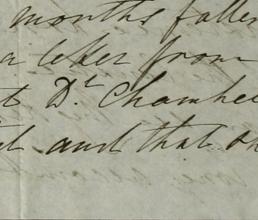 months falle
a letter from
t Dr. Chambe
and that